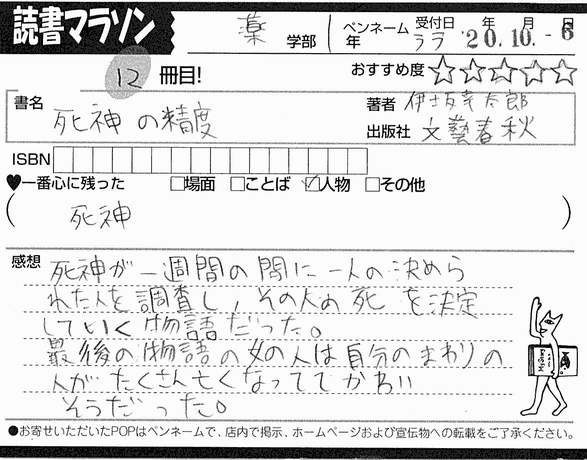 読書マラソン
薬 学部 年
ペンネーム ララ
受付日 '20年10月-6日
12 冊目!
おすすめ度 ☆☆☆☆☆
書名 死神の精度
著者 伊坂幸太郎
出版社 文藝春秋
ISBN
♥一番心に残った □場面 □ことば ☑人物 □その他
( 死神 )
感想 死神が一週間の間に一人の決めら
れた人を調査し、その人の死を決定
していく物語だった。
最後の物語の女の人は自分のまわりの
人がたくさん亡くなっててかわい
そうだった。
●お寄せいただいたPOPはペンネームで、店内で掲示、ホームページおよび宣伝物への転載をご了承ください。